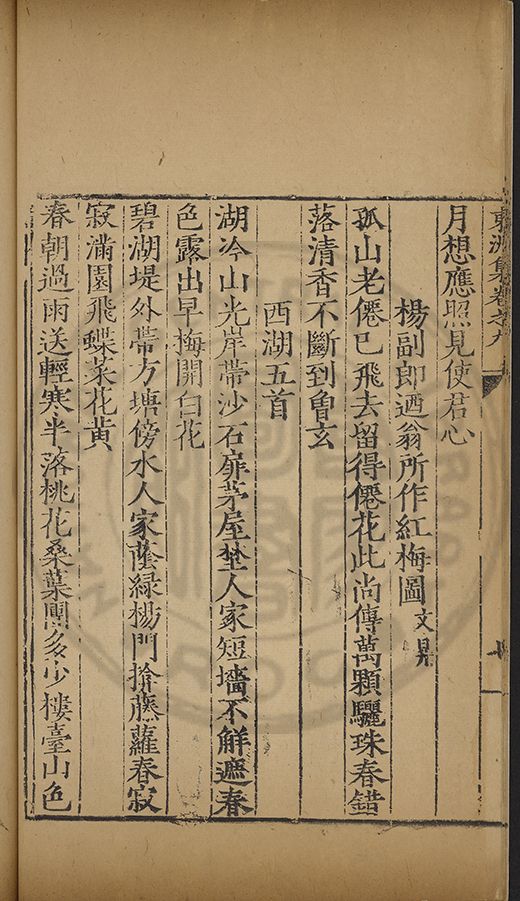 東洲集卷之九
月想應照見使君心
楊副郎迺翁所作紅梅圖 文昺
孤山老僊已飛去留得僊花此尚傳萬顆驪珠春錯
落清香不斷到曾玄
西湖五首
湖冷山光岸帶沙石扉茅屋埜人家短墻不解遮春
色露出早梅開白花
碧湖堤外帶方塘傍水人家蔭緑楊門掩藤蘿春寂
寂滿園飛蝶菜花黄
春朝過雨送輕寒半落桃花桑葉團多少樓臺山色